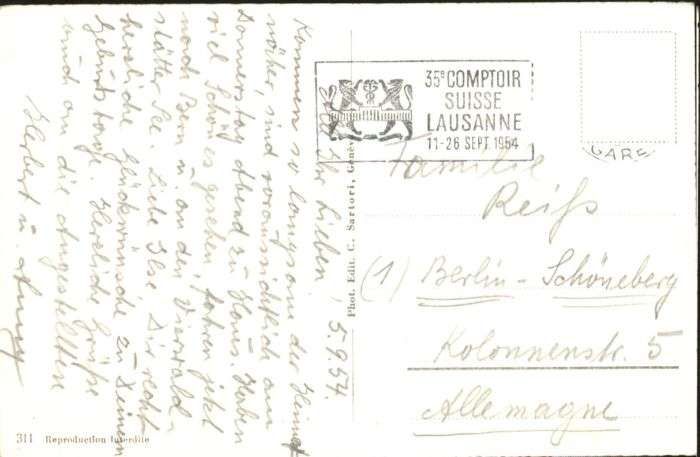 Ihr Lieben! 5.9.54.
Kommen so langsam der Heimat
näher, sind voraussichtlich am
Donnerstag Abend zu Haus. Haben
viel Schönes gesehen, fahren jetzt
nach Bern u. an den Vierwald-
stätter See. Liebe Ilse Dir recht
herzliche Glückwünsche zu Deinem
Geburtstage Herzliche Grüße
auch an die Angestellten
Herbert u.
Phot. Edit. C. Sartori, Genève
311 Reproduction Interdite
35e COMPTOIR
SUISSE
LAUSANNE
11-26 SEPT. 1954
GARE
Familie
Reiß
(1) Berlin-Schöneberg
Kolonnenstr. 5
Allemagne